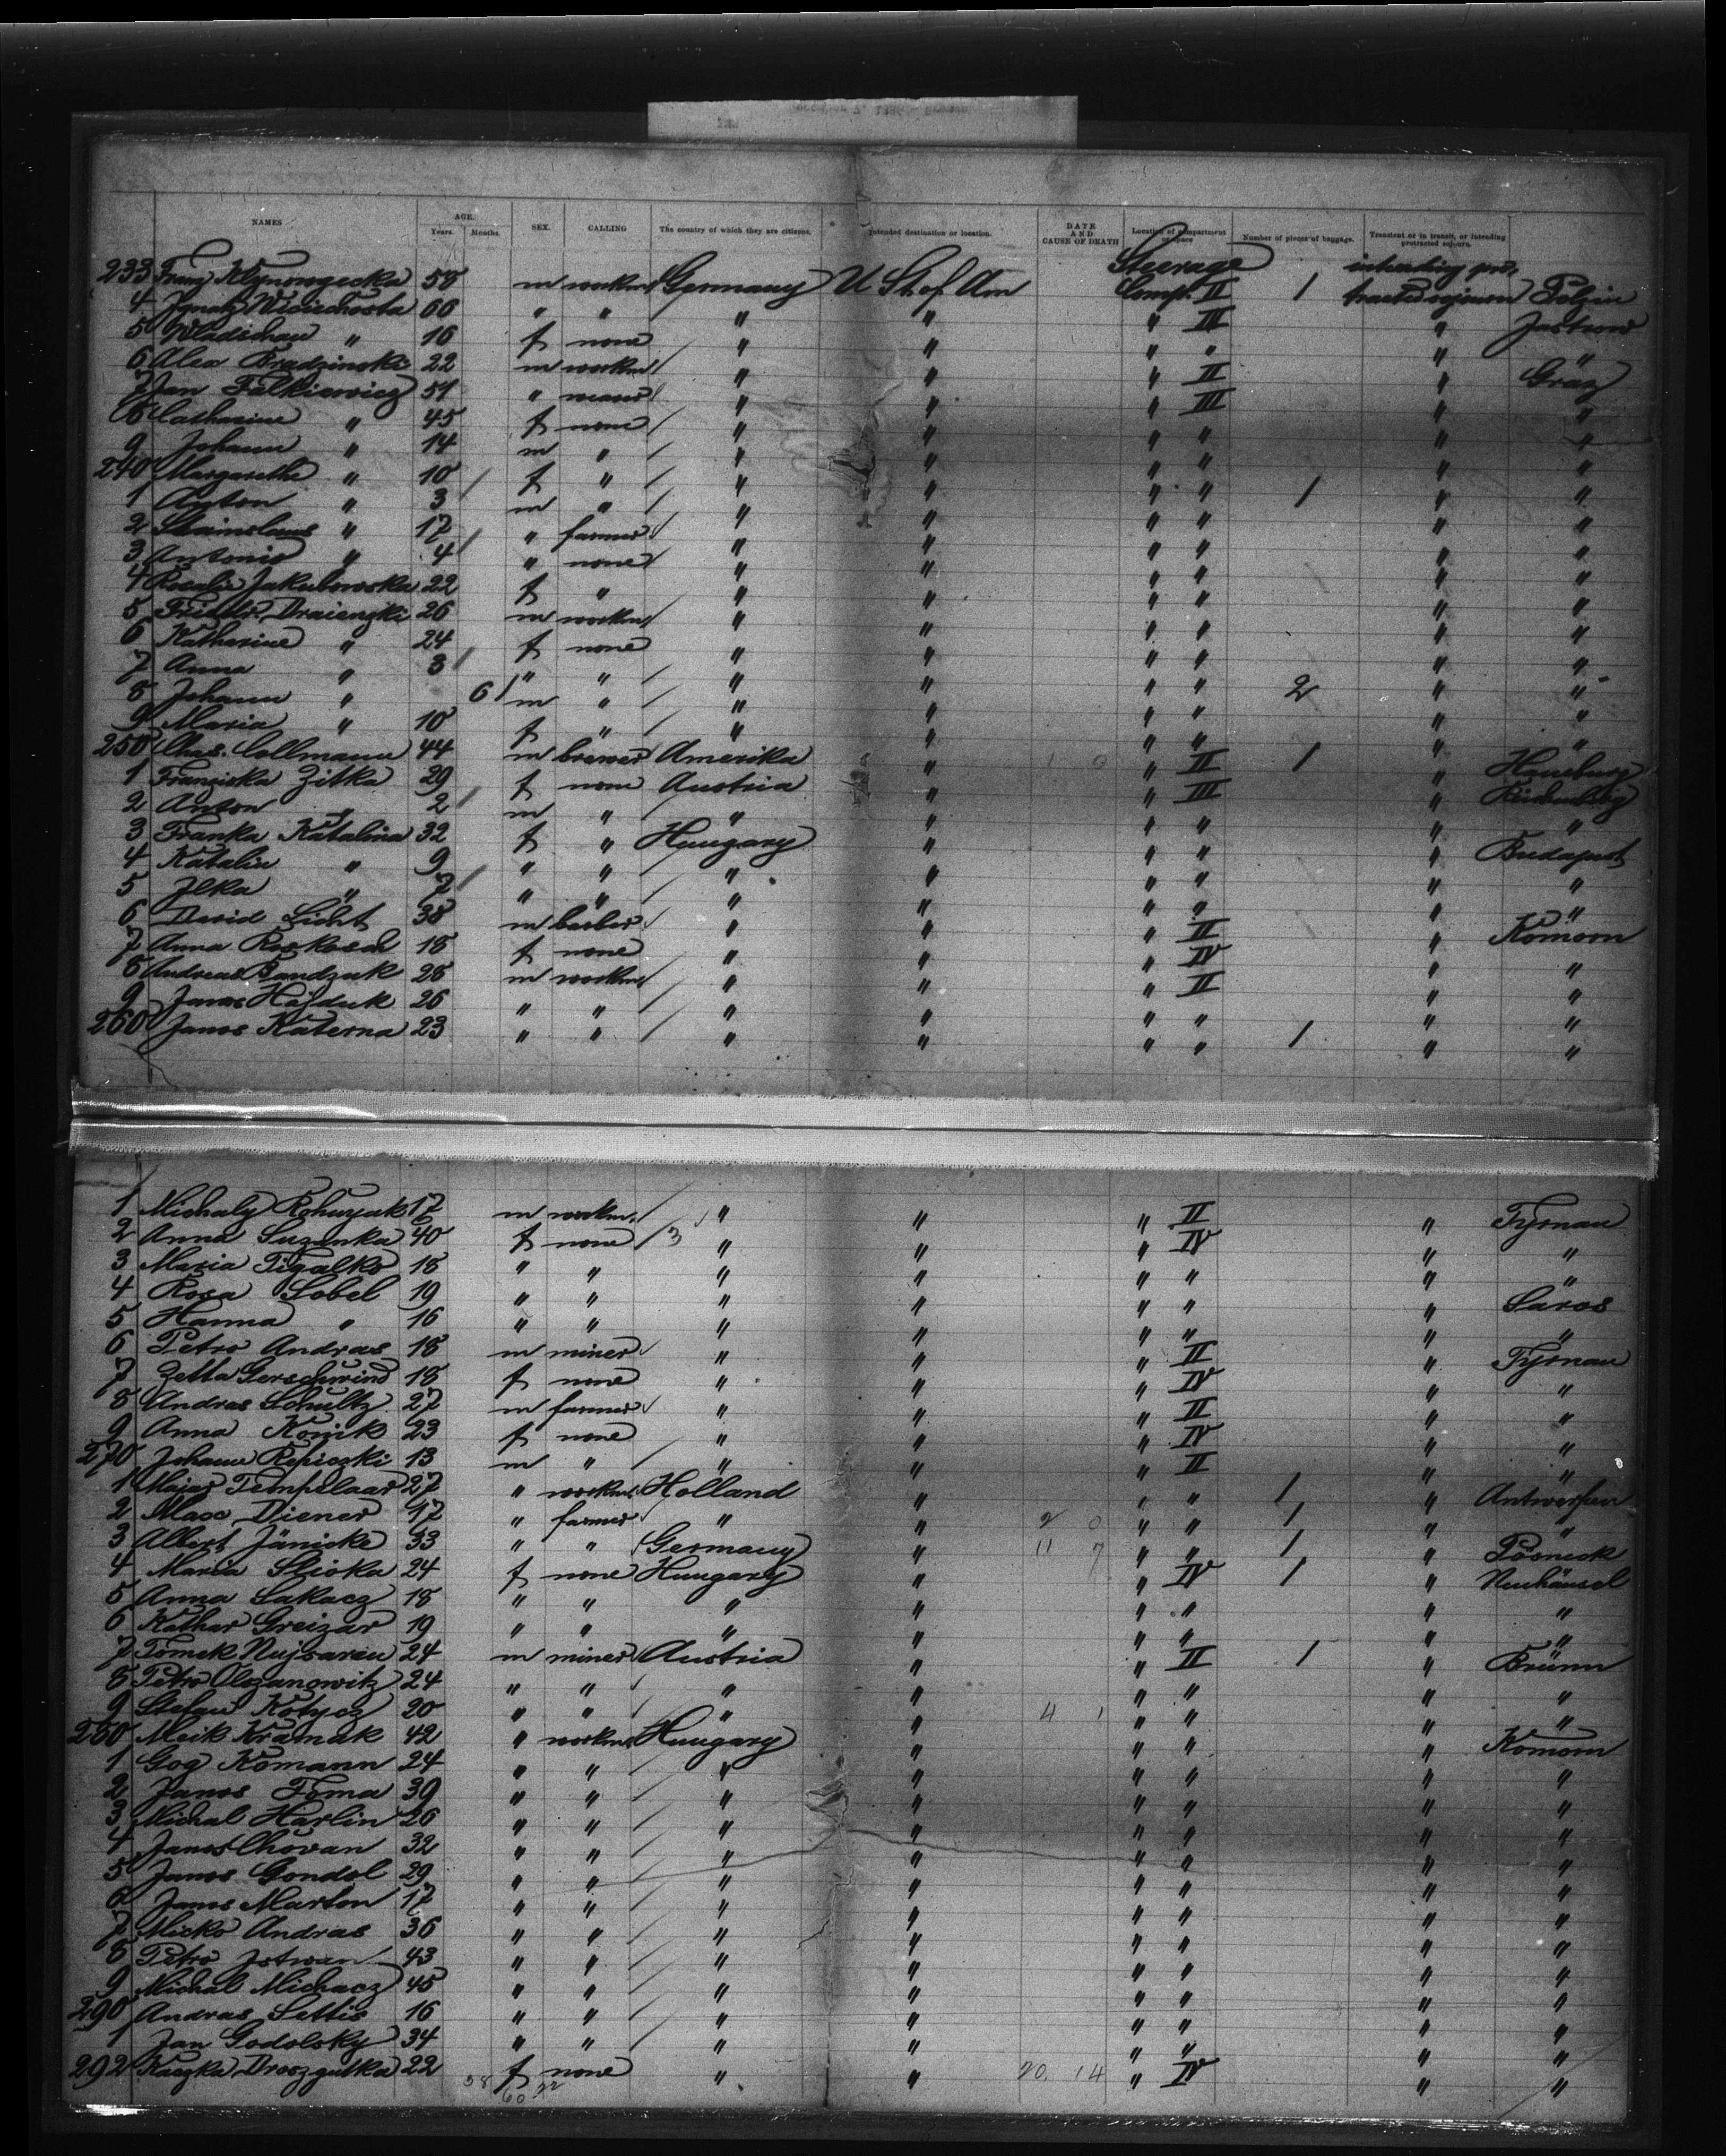 NAMES AGE. Years. Months. SEX. CALLING The country of which they are citizens. Intended destination or location. DATE AND CAUSE OF DEATH Location of compartment or space Number of pieces of baggage. Transient or in transit, or intending protracted sojourn.
Steerage intending pro-
233 Franz 58 m workm Germany U St. of Am Comp. II 1 tracted sojourn Pelzin
4 Ignatz 66 " " " " " III " Jastrow
5 " 16 f none " " " " " "
6 Alex Bradzinski 22 m workm " " " II " Graz
7 Jan Falkiewicz 51 " " " " III " "
8 Catharine " 45 f none " " " " " "
9 Johann " 14 m " " " " " " "
240 Margarethe " 10 f " " " " " " "
1 Anton " 3 m " " " " " 1 " "
2 Stainslaus " 17 " farmer " " " " " "
3 Antonie " 4 " none " " " " " "
4 Rosalie Jakubowska 22 f " " " " " " "
5 Draiengki 26 m workm " " " " " "
6 Katharine " 24 f none " " " " " "
7 Anna " 3 " " " " " " " "
8 Johann " 6 m " " " " " 2 " "
9 Maria " 10 f " " " " " " "
250 Chas. Collmann 44 m brewer Amerika " 1 0 " II 1 " Hamburg
1 Franziska Zitka 29 f none Austria " " III "
2 Anton " 2 m " " " " " " "
3 Franka Katalina 32 f " Hungary " " " " Budapest
4 Katalin " 9 " " " " " " " "
5 Ilka " 7 " " " " " " " "
6 David Licht 38 m barber " " " II " Komorn
7 Anna Roskosch 18 f none " " " IV " "
8 Andreas Bandzuk 28 m workm " " " II " "
9 Janos Hajduk 26 " " " " " " " "
260 Janos Katerna 23 " " " " " " 1 " "
1 Michaly Rohusjak 17 m workm. " " " II " Tyrnau
2 Anna Suzinka 40 f none 3 " " " IV " "
3 Maria Figalko 18 " " " " " " " "
4 Rosa Sobel 19 " " " " " " " Saros
5 Hanna " 16 " " " " " " " "
6 Petro Andras 18 m miner " " " II " Tyrnau
7 Zetta Gerschwind 18 f none " " " IV " "
8 Andras Schultz 27 m farmer " " " II " "
9 Anna Konik 23 f none " " " IV " "
270 Johann Repiszki 13 m " " " " II " "
1 Majer Tempelaar 27 " workm. Holland " " " 1 " Antwerpen
2 Max Diener 17 " farmer " " 2 0 " " 1 " "
3 Albert Jänicke 33 " " Germany " 11 7 " " 1 " Pösneck
4 Maria Slioka 24 f none Hungary " " IV 1 " Neuhäusel
5 Anna Lakacz 18 " " " " " " " "
6 Kathar Greizar 19 " " " " " " " "
7 Tomek Nujsaren 24 m miner Austria " " II 1 " Brünn
8 Petro Olszanowitz 24 " " " " " " " "
9 Stefan Kotycz 20 " " " " 4 1 " " " "
280 Meik Kramak 42 " workm. Hungary " " " " Komorn
1 Gog Komann 24 " " " " " " " "
2 Janos Toma 39 " " " " " " " "
3 Michal Harlin 26 " " " " " " " "
4 Janos Chovan 32 " " " " " " " "
5 Janos Gondol 29 " " " " " " " "
6 Janos Marton 17 " " " " " " " "
7 Micko Andras 36 " " " " " " " "
8 Petro Istwan 43 " " " " " " " "
9 Michal Michacz 45 " " " " " " " "
290 Andras Settis 16 " " " " " " " "
1 Jan Godolsky 34 " " " " " " " "
292 Kaczka Droszgutka 22 f none " " 20. 14 " IV " "
38 60 22